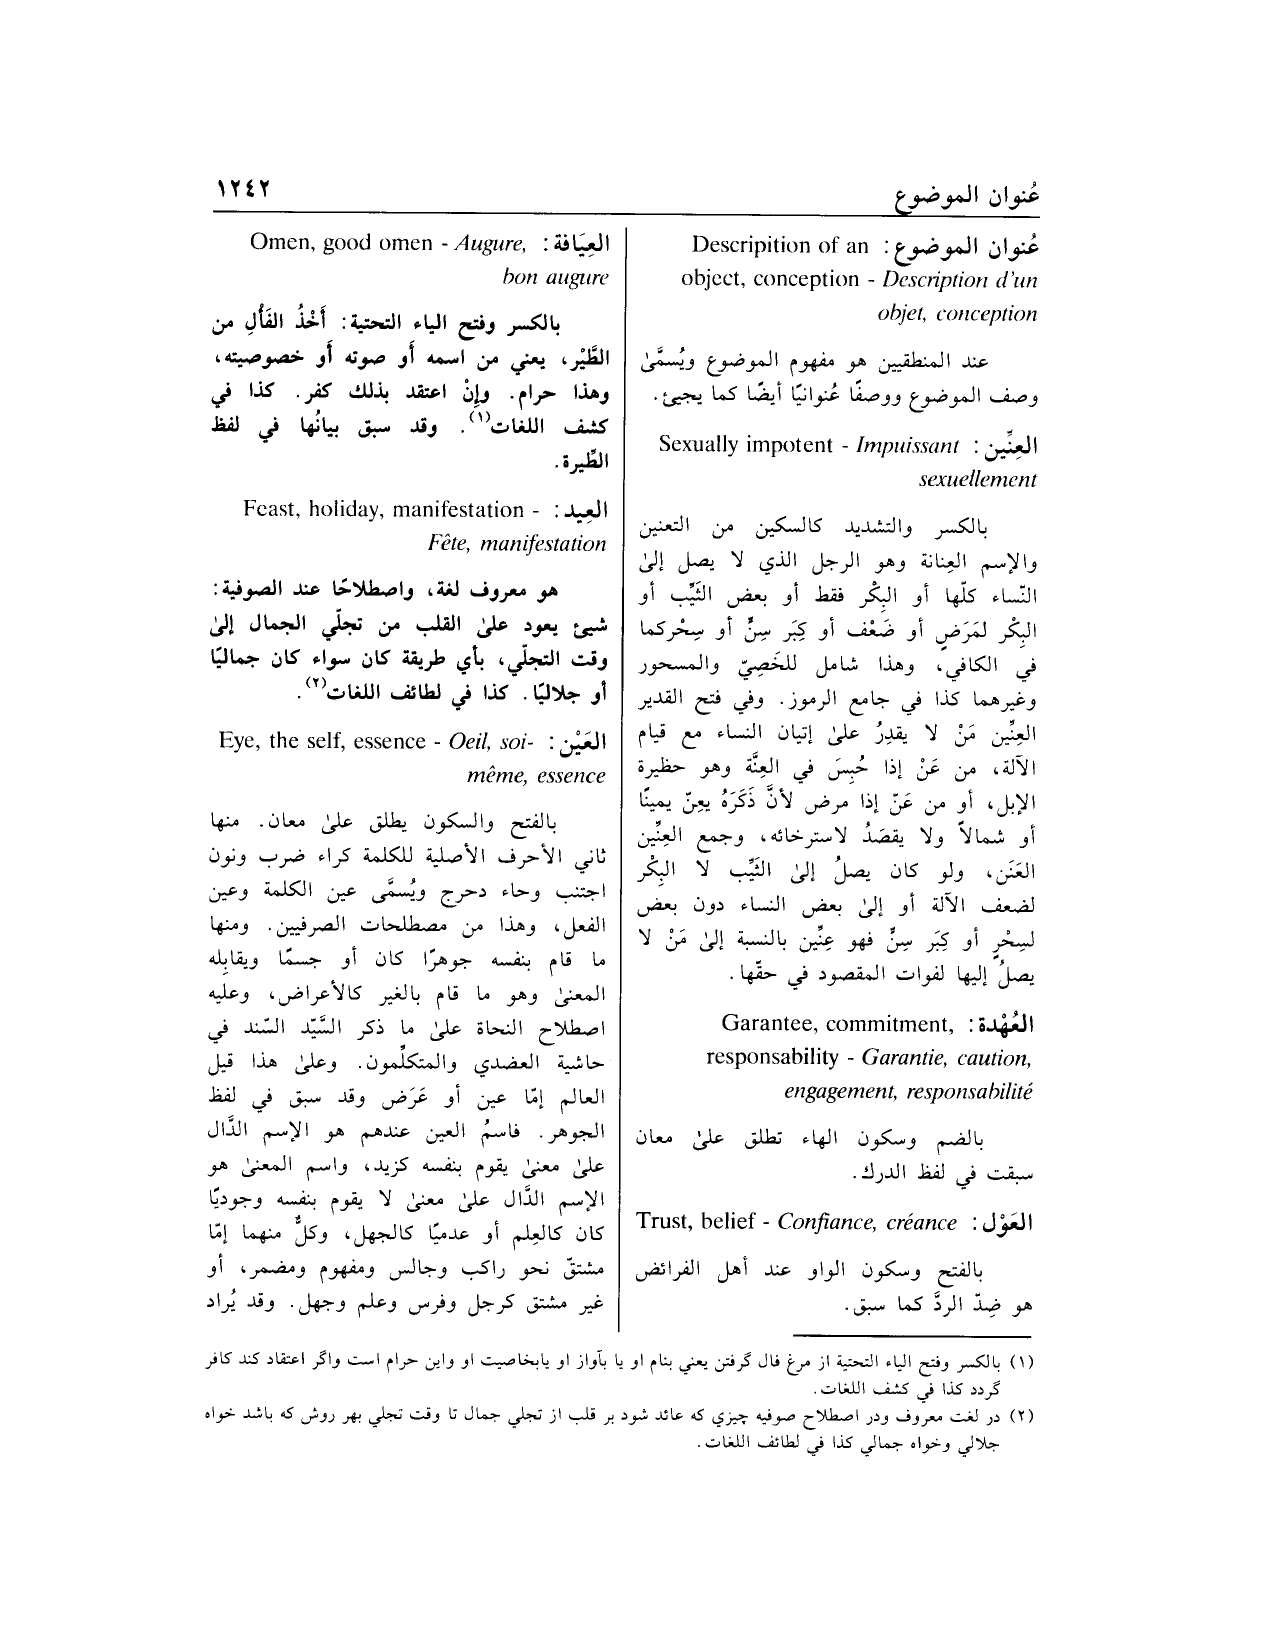 عُنوان الموضوع
١٢٤٢
عُنوان الموضوع : Descripition of an
object, conception - Description d'un
objet, conception
عند المنطقيين هو مفهوم الموضوع ويُسمَّىٰ
وصف الموضوع ووصفًا عُنوانيًا أيضًا كما يجيئ.
العِنِّين : Sexually impotent - Impuissant
sexuellement
بالكسر والتشديد كالسكين من التعنين
والإسم العِنانة وهو الرجل الذي لا يصل إلىٰ
النّساء كلّها أو البِكْر فقط أو بعض الثَيِّب أو
البِكْر لمَرَضٍ أو ضَعْف أو كِبَر سِنٍّ أو سِحْركما
في الكافي، وهذا شامل للخَصِيّ والمسحور
وغيرهما كذا في جامع الرموز. وفي فتح القدير
العِنِّين مَنْ لا يقدِرُ علىٰ إتيان النساء مع قيام
الآلة، من عَنْ إذا حُبِسَ في العِنَّة وهو حظيرة
الإبل، أو من عَنّ إذا مرض لأنَّ ذَكَرَهُ يعِنّ يمينًا
أو شمالاً ولا يقصَدُ لاسترخائه، وجمع العِنِّين
العَنَن، ولو كان يصلُ إلىٰ الثَيِّب لا البِكْر
لضعف الآلة أو إلىٰ بعض النساء دون بعض
لسِحْرٍ أو كِبَر سِنٍّ فهو عِنِّين بالنسبة إلىٰ مَنْ لا
يصلُ إليها لفوات المقصود في حقّها.
العُهْدة : Garantee, commitment,
responsability - Garantie, caution,
engagement, responsabilité
بالضم وسكون الهاء تطلق علىٰ معان
سبقت في لفظ الدرك.
العَوْل : Trust, belief - Confiance, créance
بالفتح وسكون الواو عند أهل الفرائض
هو ضِدّ الردَّ كما سبق.
العِيَافة : Omen, good omen - Augure,
bon augure
بالكسر وفتح الياء التحتية: أَخْذُ الفَأْلِ من
الطَّيْر، يعني من اسمه أو صوته أو خصوصيته،
وهذا حرام. وإنْ اعتقد بذلك كفر. كذا في
كشف اللغات(١). وقد سبق بيانُها في لفظ
الطِّيرة.
العِيد : Feast, holiday, manifestation -
Fête, manifestation
هو معروف لغة، واصطلاحًا عند الصوفية:
شيئ يعود علىٰ القلب من تجلّي الجمال إلىٰ
وقت التجلّي، بأي طريقة كان سواء كان جماليًا
أو جلاليًا. كذا في لطائف اللغات(٢).
العَيْن : Eye, the self, essence - Oeil, soi-
même, essence
بالفتح والسكون يطلق علىٰ معان. منها
ثاني الأحرف الأصلية للكلمة كراء ضرب ونون
اجتنب وحاء دحرج ويُسمَّى عين الكلمة وعين
الفعل، وهذا من مصطلحات الصرفيين. ومنها
ما قام بنفسه جوهرًا كان أو جسمًا ويقابِله
المعنىٰ وهو ما قام بالغير كالأعراض، وعليه
اصطلاح النحاة علىٰ ما ذكر السَّيّد السّند في
حاشية العضدي والمتكلِّمون. وعلىٰ هذا قيل
العالم إمّا عين أو عَرَض وقد سبق في لفظ
الجوهر. فاسمُ العين عندهم هو الإسم الدَّال
علىٰ معنىٰ يقوم بنفسه كزيد، واسم المعنىٰ هو
الإسم الدَّال علىٰ معنىٰ لا يقوم بنفسه وجوديًا
كان كالعِلم أو عدميًا كالجهل، وكلٌّ منهما إمّا
مشتقّ نحو راكب وجالس ومفهوم ومضمر، أو
غير مشتق كرجل وفرس وعلم وجهل. وقد يُراد
(١) بالكسر وفتح الياء التحتية از مرغ فال گرفتن يعني بنام او يا بآواز او يابخاصيت او واين حرام است واگر اعتقاد كند كافر
گردد كذا في كشف اللغات.
(٢) در لغت معروف ودر اصطلاح صوفيه چيزي كه عائد شود بر قلب از تجلي جمال تا وقت تجلي بهر روش كه باشد خواه
جلالي وخواه جمالي كذا في لطائف اللغات.